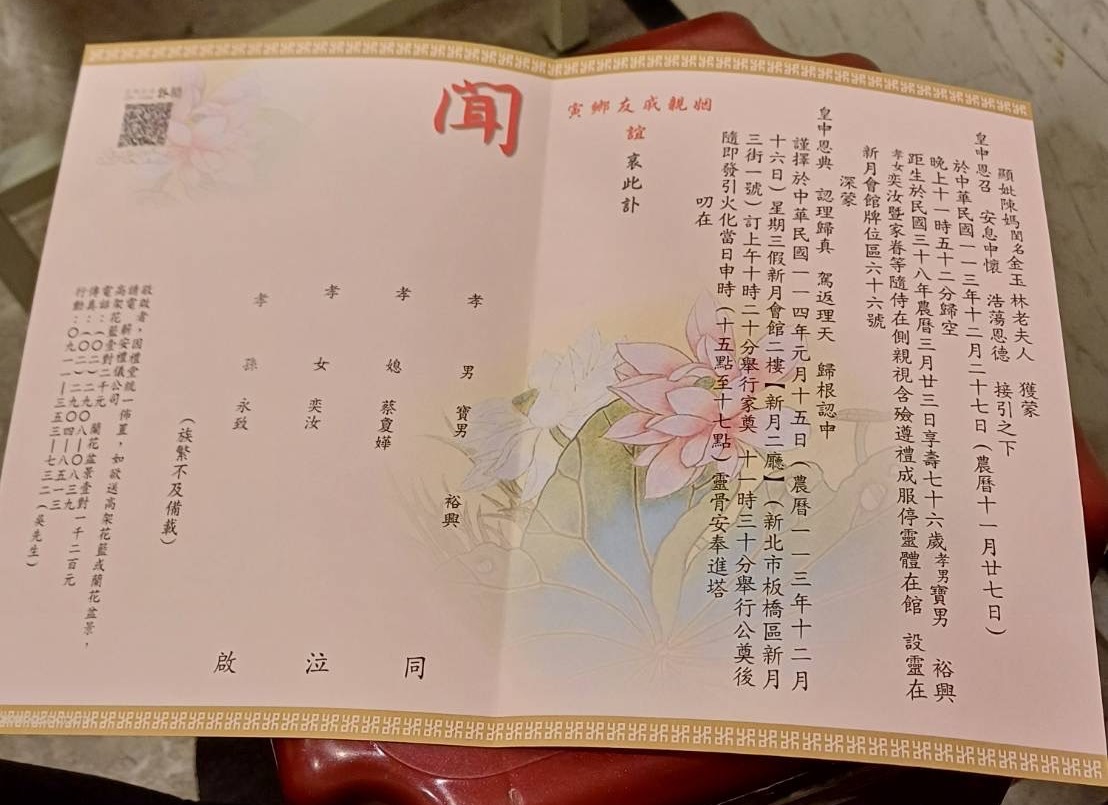 顯妣陳媽閨名金玉林老夫人 獲蒙
皇申恩召 安息申懷 浩蕩恩德 接引之下
於中華民國一一三年十二月二十七日(農曆十一月廿七日)
晚上十一時五十二分歸空
距生於民國三十八年農曆三月廿三日享壽七十六歲孝男寶男 裕興
孝女奕汝暨家眷等隨侍在側親視含殮遵禮成服停靈體在館 設靈在
新月會館牌位區六十六號
深蒙
皇申恩典 認理歸真 駕返理天 歸根認申
謹擇於中華民國一一四年元月十五日(農曆一一三年十二月
十六日)星期三假新月會館二樓【新月二廳】(新北市板橋區新月
三街一號)訂上午十時二十分舉行家奠 十一時三十分舉行公奠後
隨即發引火化當日申時(十五點至十七點)靈骨安奉進塔
叨在
姻親戚友鄉寅
誼 哀此訃
聞
孝 男 寶男 裕興
孝 媳 蔡夐嬅
孝 女 奕汝
孝 孫 永致
同 泣 啟
(族繁不及備載)
敬啟者,因禮堂統一佈置,如欲送高架花籃或蘭花盆景,
請電:薪安禮儀公司
高架花籃壹對二千元 蘭花盆景壹對一千二百元
電話:(〇二)二九〇八—〇八三九
傳真:(〇二)二九〇四—八五一三
行動:〇九一一—三五三—七三二(吳先生)